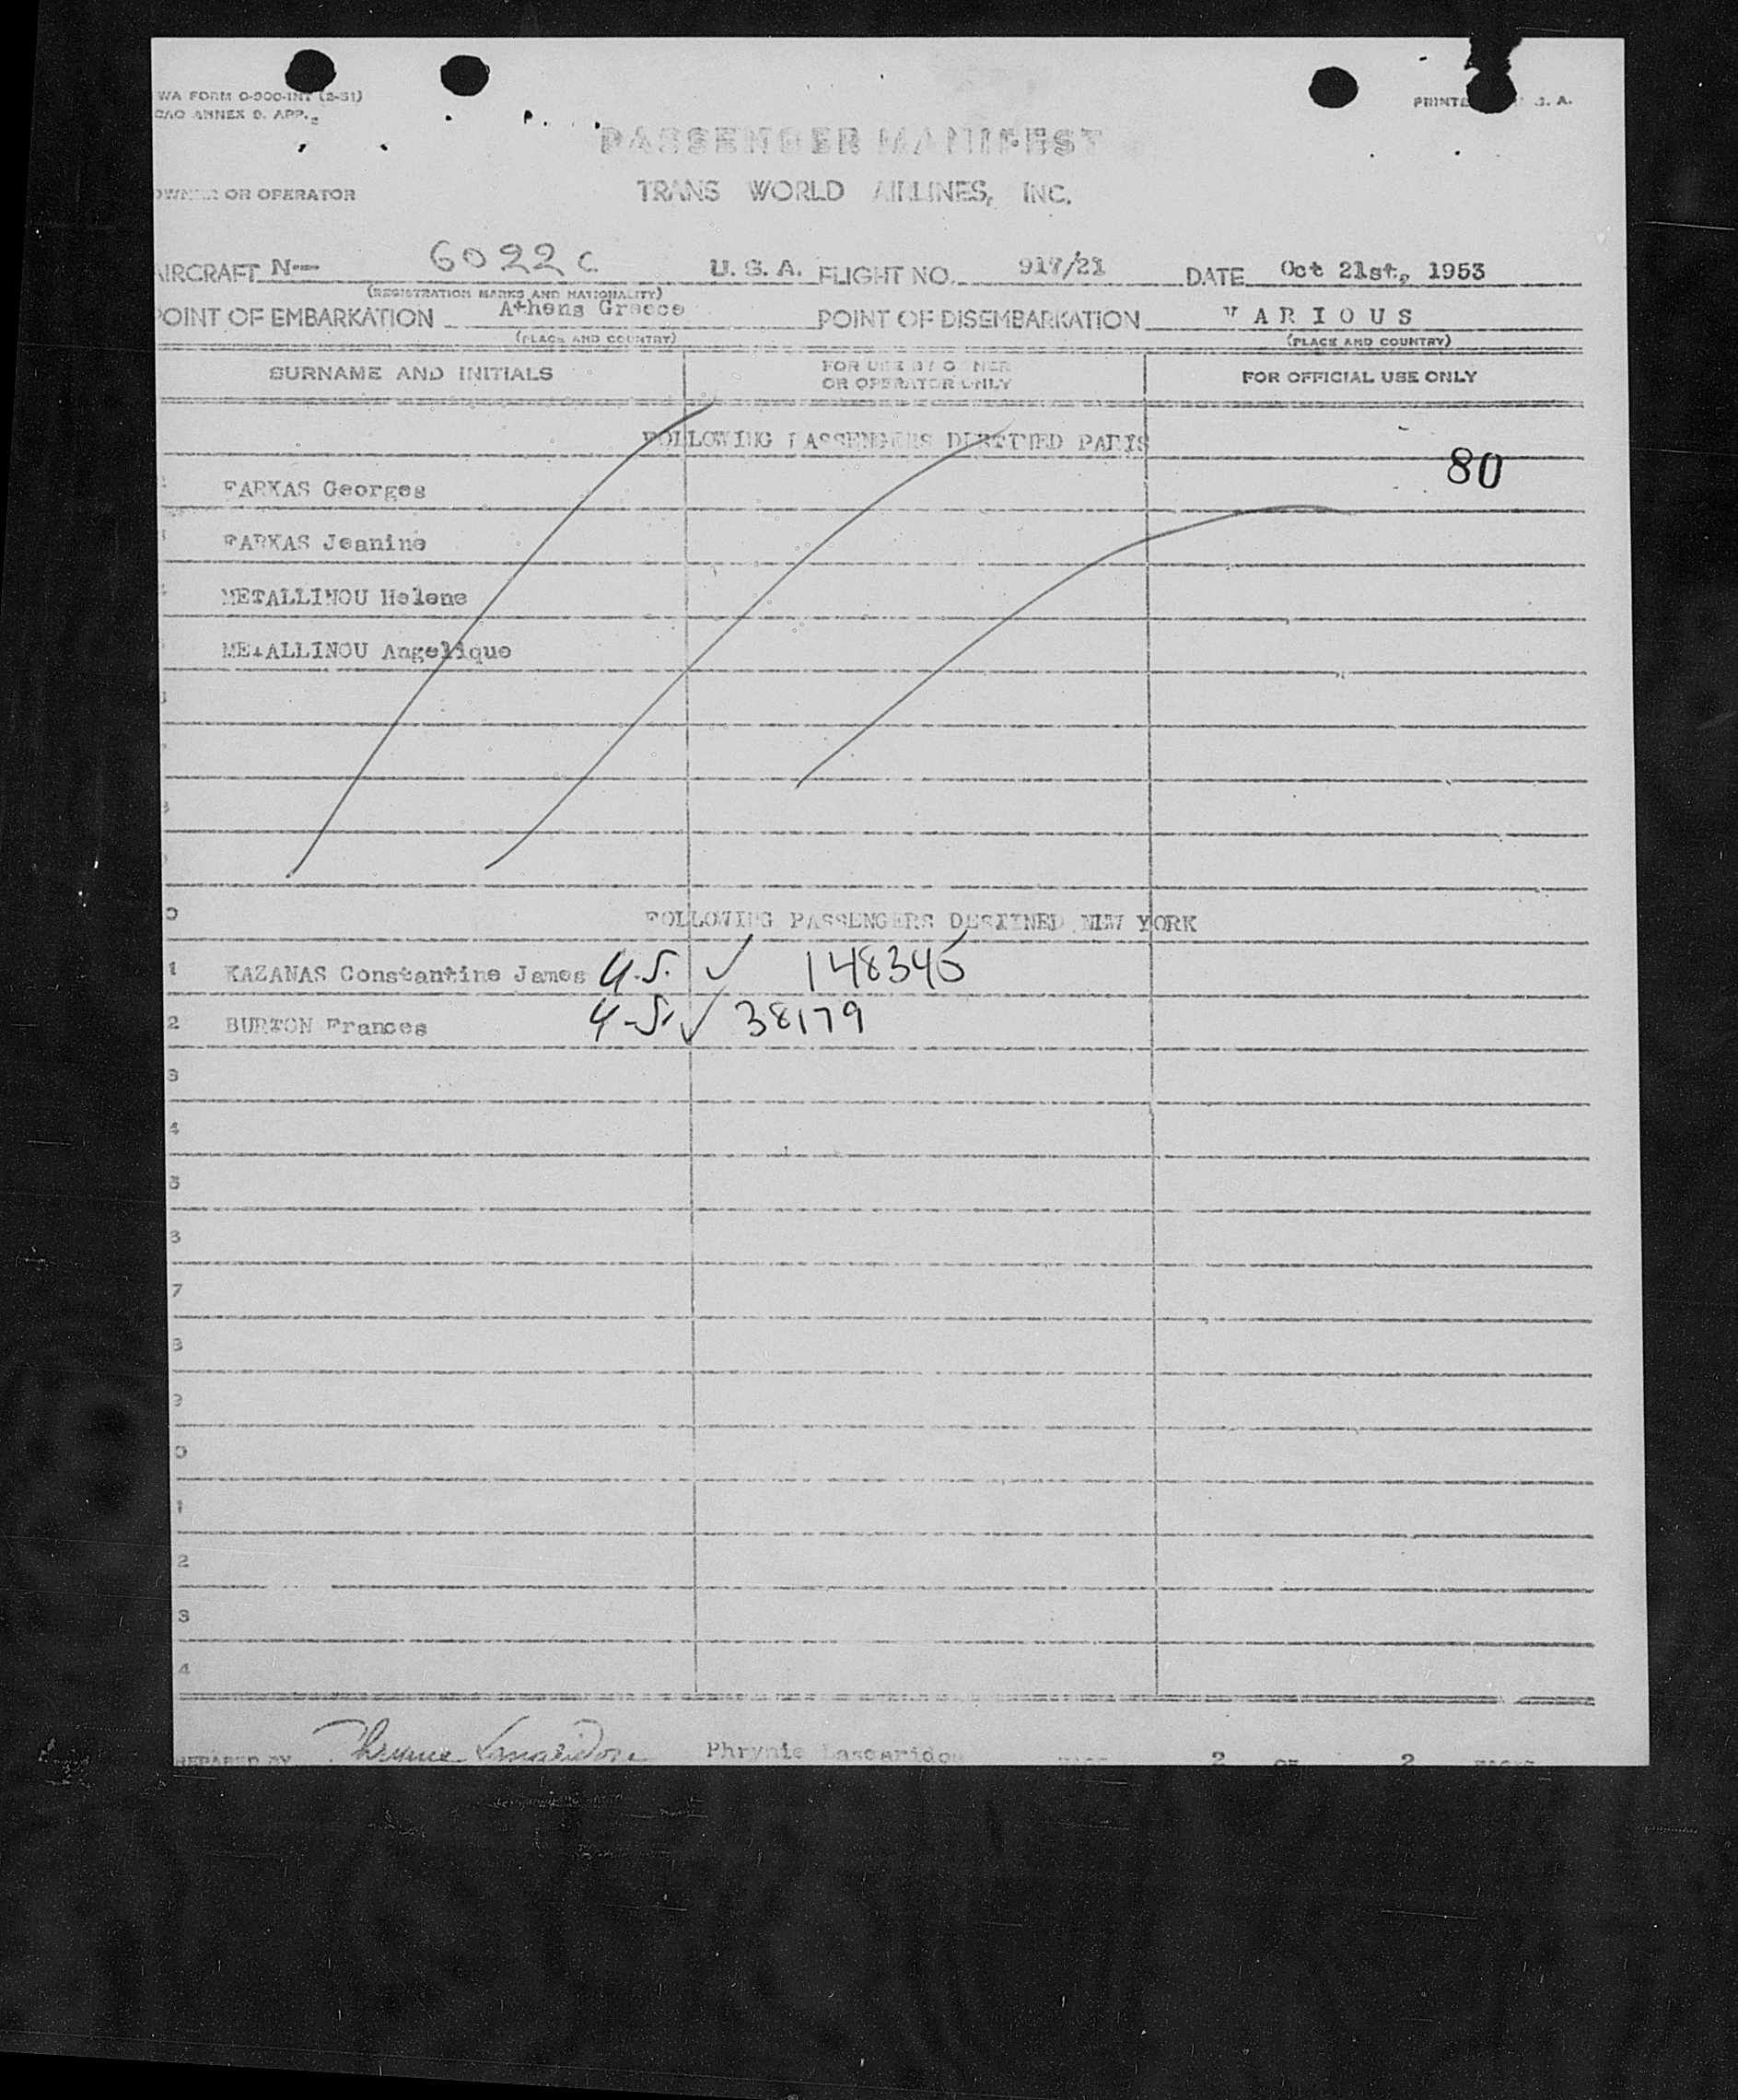 WA FORM O-900-INT (2-51)
CAO ANNEX 9. APP.
PRINTE S. A.
PASSENGER MANIFEST
OWNER OR OPERATOR TRANS WORLD AIRLINES, INC.
AIRCRAFT N— 6022C U. S. A. FLIGHT NO. 917/21 DATE Oct 21st, 1953
(REGISTRATION MARKS AND NATIONALITY)
POINT OF EMBARKATION Athens Greece POINT OF DISEMBARKATION VARIOUS
(PLACE AND COUNTRY) (PLACE AND COUNTRY)
SURNAME AND INITIALS FOR USE BY OWNER OR OPERATOR ONLY FOR OFFICIAL USE ONLY
FOLLOWING PASSENGERS DESTINED PARIS
80
FARKAS Georges
FARKAS Jeanine
METALLINOU Helene
METALLINOU Angelique
0 FOLLOWING PASSENGERS DESTINED NEW YORK
1 KAZANAS Constantine James U.S. ✓ 148345
2 BURTON Frances U.S. ✓ 38179
3
4
5
6
7
8
9
0
1
2
3
4
PREPARED BY Phrynie Lascaridou Phrynie Lascaridou PAGE 2 OF 2 PAGES